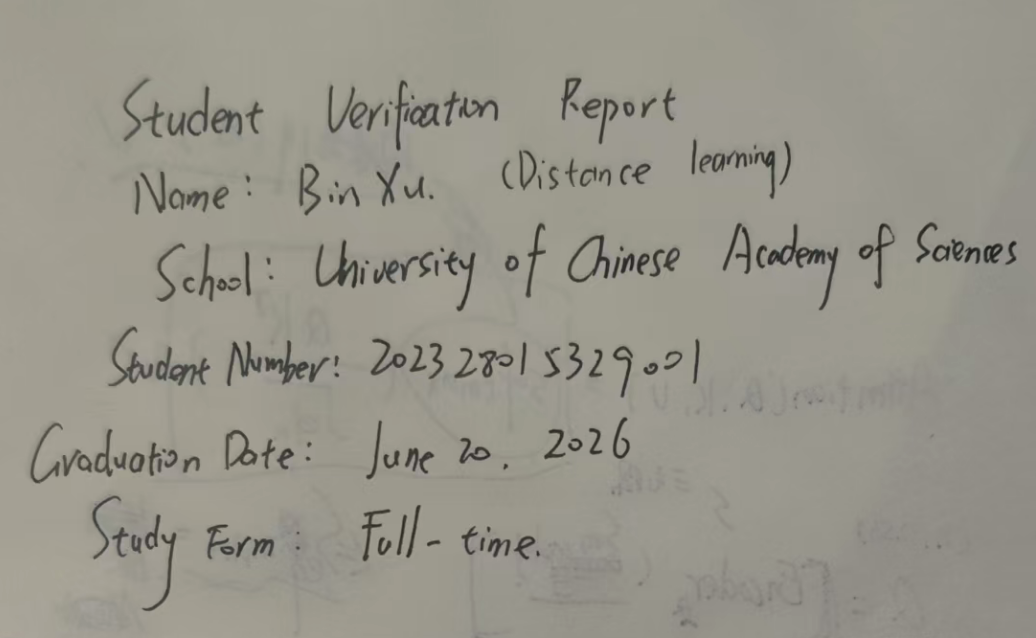 Student Verification Report
Name: Bin Xu. (Distance learning)
School: University of Chinese Academy of Sciences
Student Number: 202328015329001
Graduation Date: June 20, 2026
Study Form: Full-time.